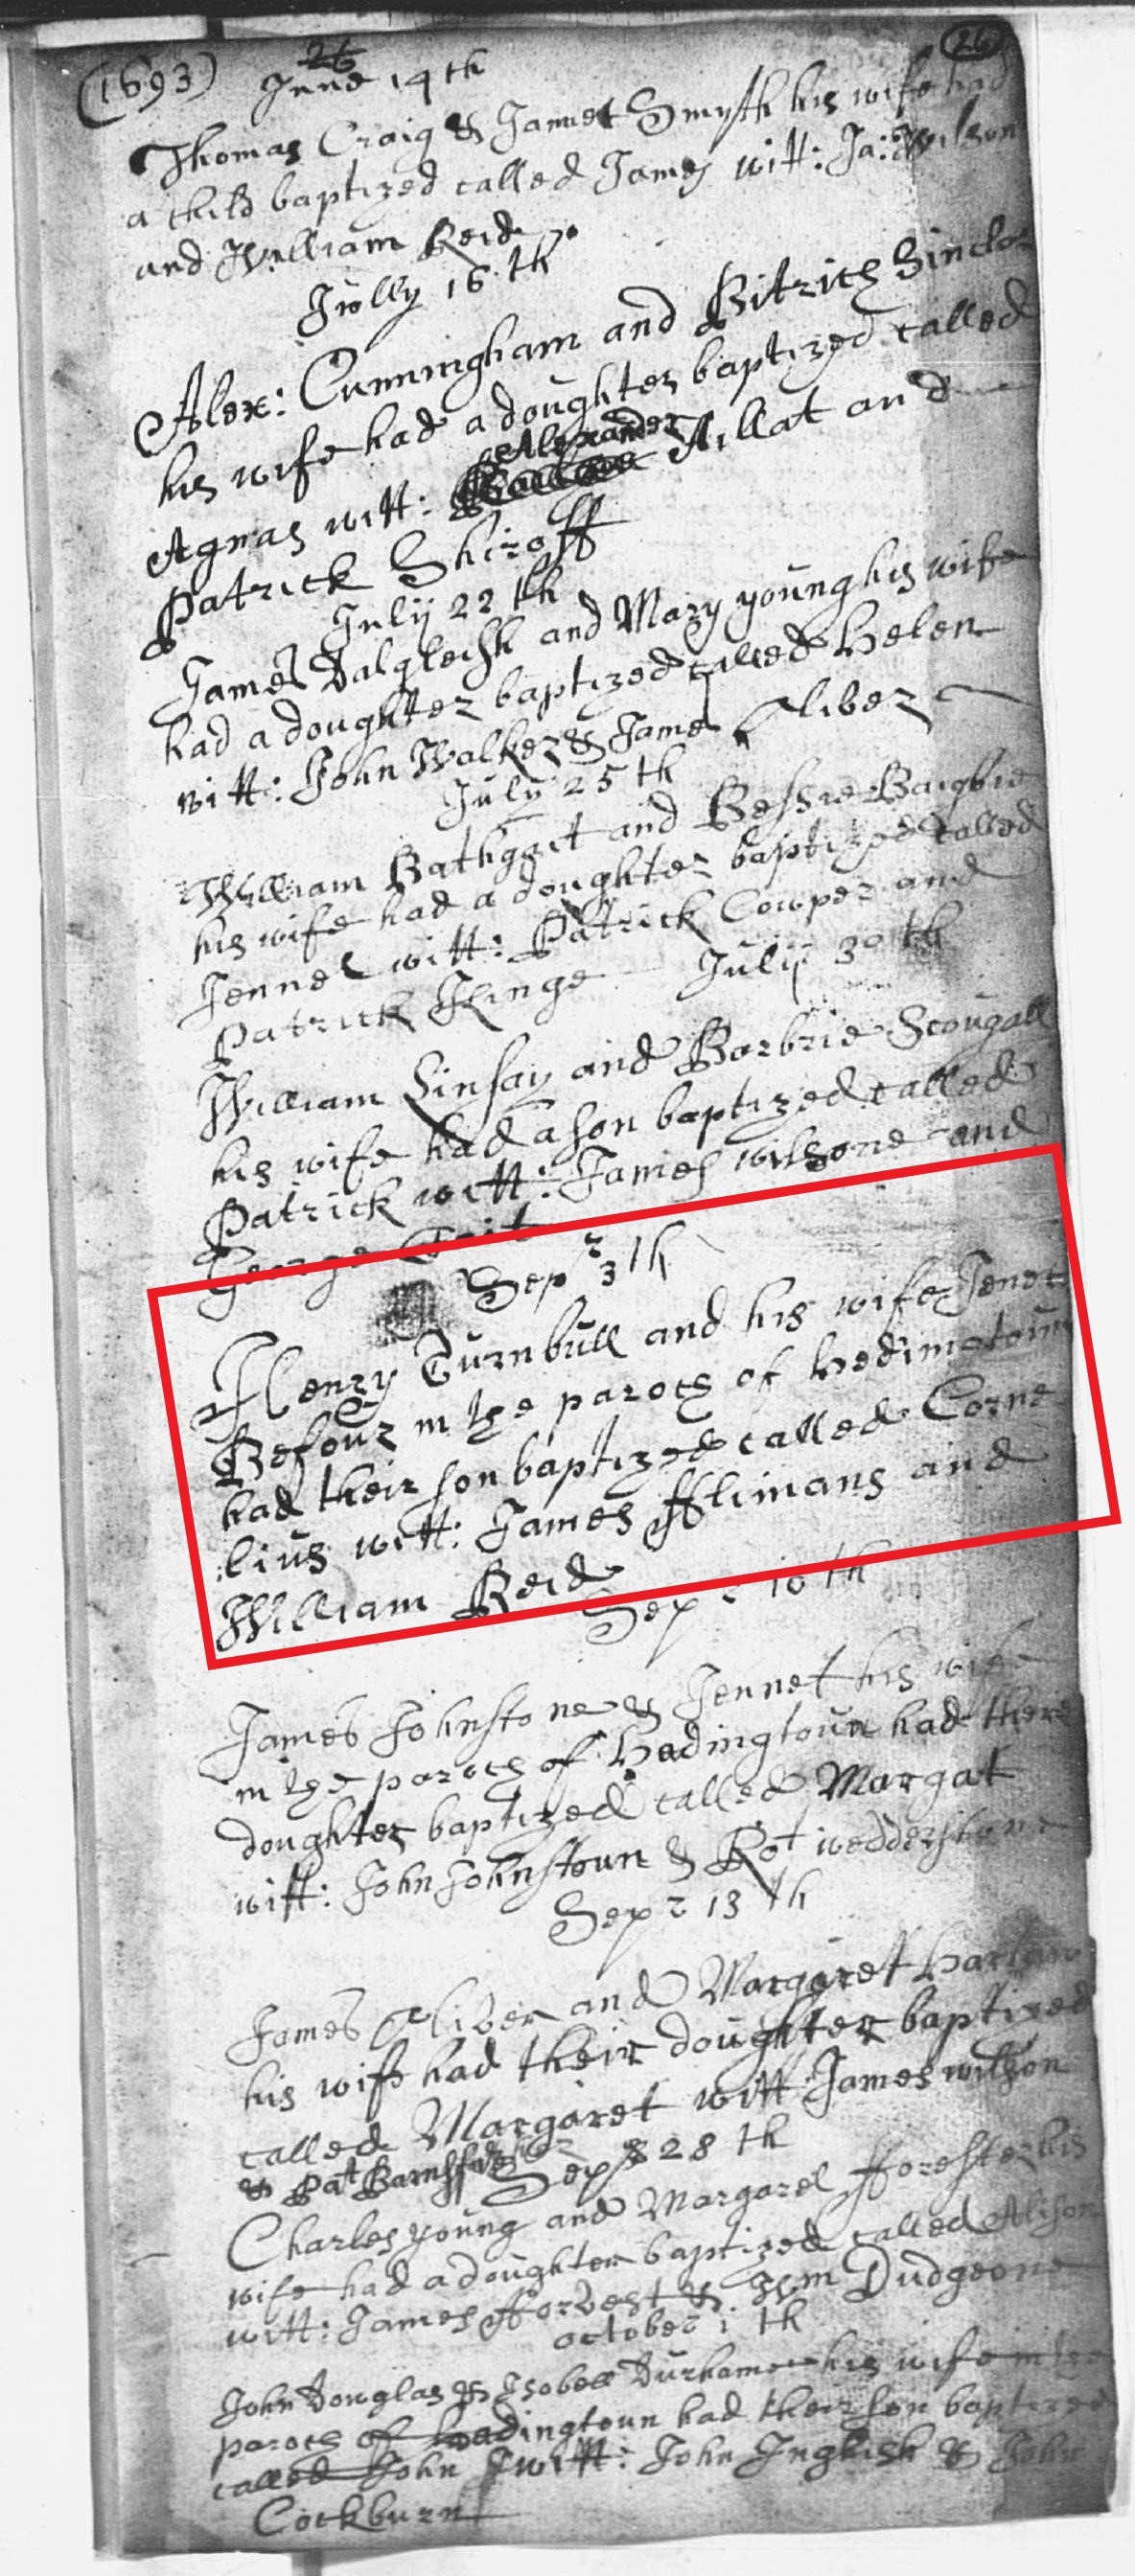 (1693)
26
26
June 14th
Thomas Craig & Jannet Smyth his wife had
a child baptized called James witt: Ja: Wilson
and William Reid
Jully 16 th
Alex: Cunningham and Bitrich Sincler
his wife had a doughter baptized called
Alexander
Agnas witt: Aillat and
Patrick Shiroff
Julij 22 th
James Dalgleish and Mary young his wife
had a doughter baptized called Helen
witt: John Walker & James Oliver
July 25 th
William Bathgat and Bessie Baigbie
his wife had a doughter baptized called
Jennet witt: Patrick Cowper and
Patrick Hinge Julij 30 th
William Linsay and Barbrie Scougall
his wife had a son baptized called
Patrick witt: James wilsone and
George Tait
Sepr 3 th
Henry Turnbull and his wife Jenet
Befour in the paroch of hedingtoun
had their son baptized called Corne
lius witt: James fflimans and
William Reid
Sepr 10 th
James Johnstone & Jennet his wife
in the paroch of Hadingtoun had there
doughter baptized called Margat
witt: John Johnstoun & Rot wedderstone
Sepr 13 th
James Oliver and Margaret
his wife had their doughter baptized
called Margaret witt James wilson
& Pat Barnsfather
Sepr 28 th
Charles young and Margaret fforester his
wife had a doughter baptized called Alison
witt: James fforrest & Wm Dudgeone
october 1 th
John Douglas & Isobell Durhame his wife in the
paroch of hadingtoun had their son baptized
called John witt: John Inglish & John
Cockburn